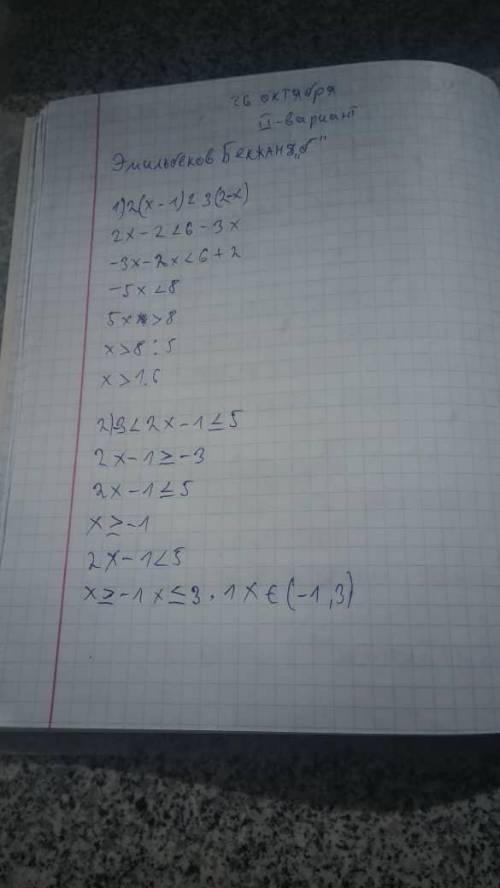 26 октября
II-вариант
Эмильбеков Бекжан 8"б"
1)2(x-1)<3(2-x)
2x-2<6-3x
-3x-2x<6+2
-5x<8
5x>8
x>8:5
x>1.6
2)-3<2x-1≤5
2x-1≥-3
2x-1≤5
x≥-1
2x-1<5
x≥-1 x≤3.1 x∈(-1,3)